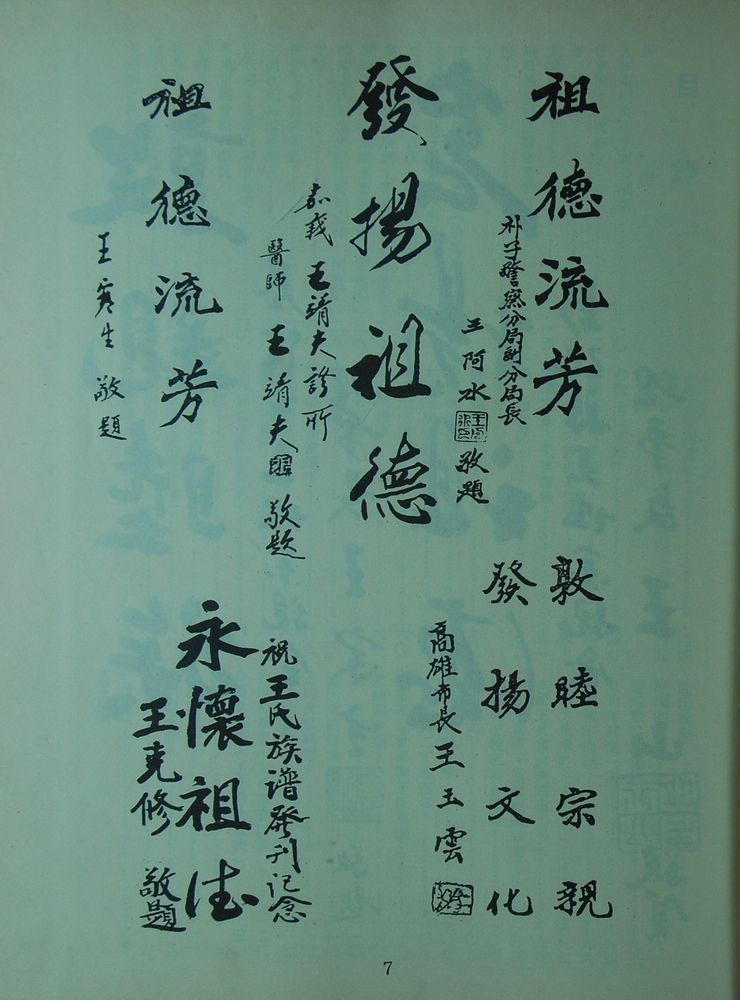 祖德流芳
朴子警察分局副分局長
王阿水
敬題
發揚祖德
嘉義王靖夫診所
醫師王靖夫
敬題
祖德流芳
敬題
敦睦宗親
發揚文化
高雄市長王玉雲
祝王氏族譜發刊記念
永懷祖德
王克修敬題
7